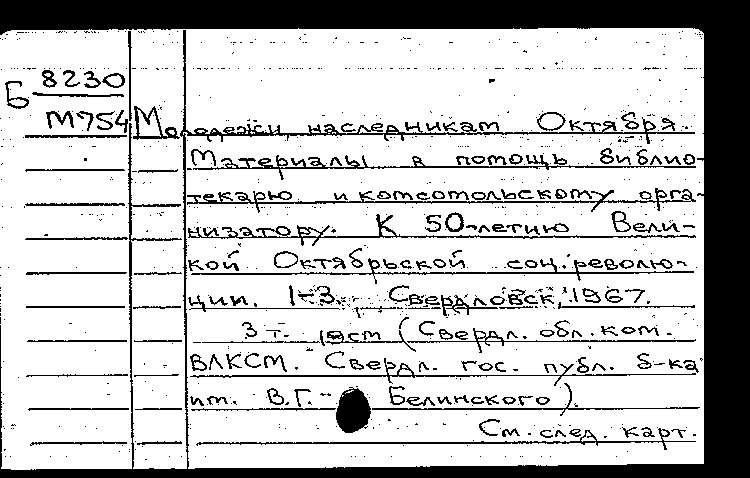 Б 8230
М754 Молодежи, наследникам Октября.
Материалы в помощь библио-
текарю и комсомольскому орга-
низатору. К 50-летию Вели-
кой Октябрьской соц. револю-
ции. 1-3. Свердловск, 1967.
3 т. 19см (Свердл. обл. ком.
ВЛКСМ. Свердл. гос. публ. б-ка
им. В.Г. Белинского).
См. след. карт.